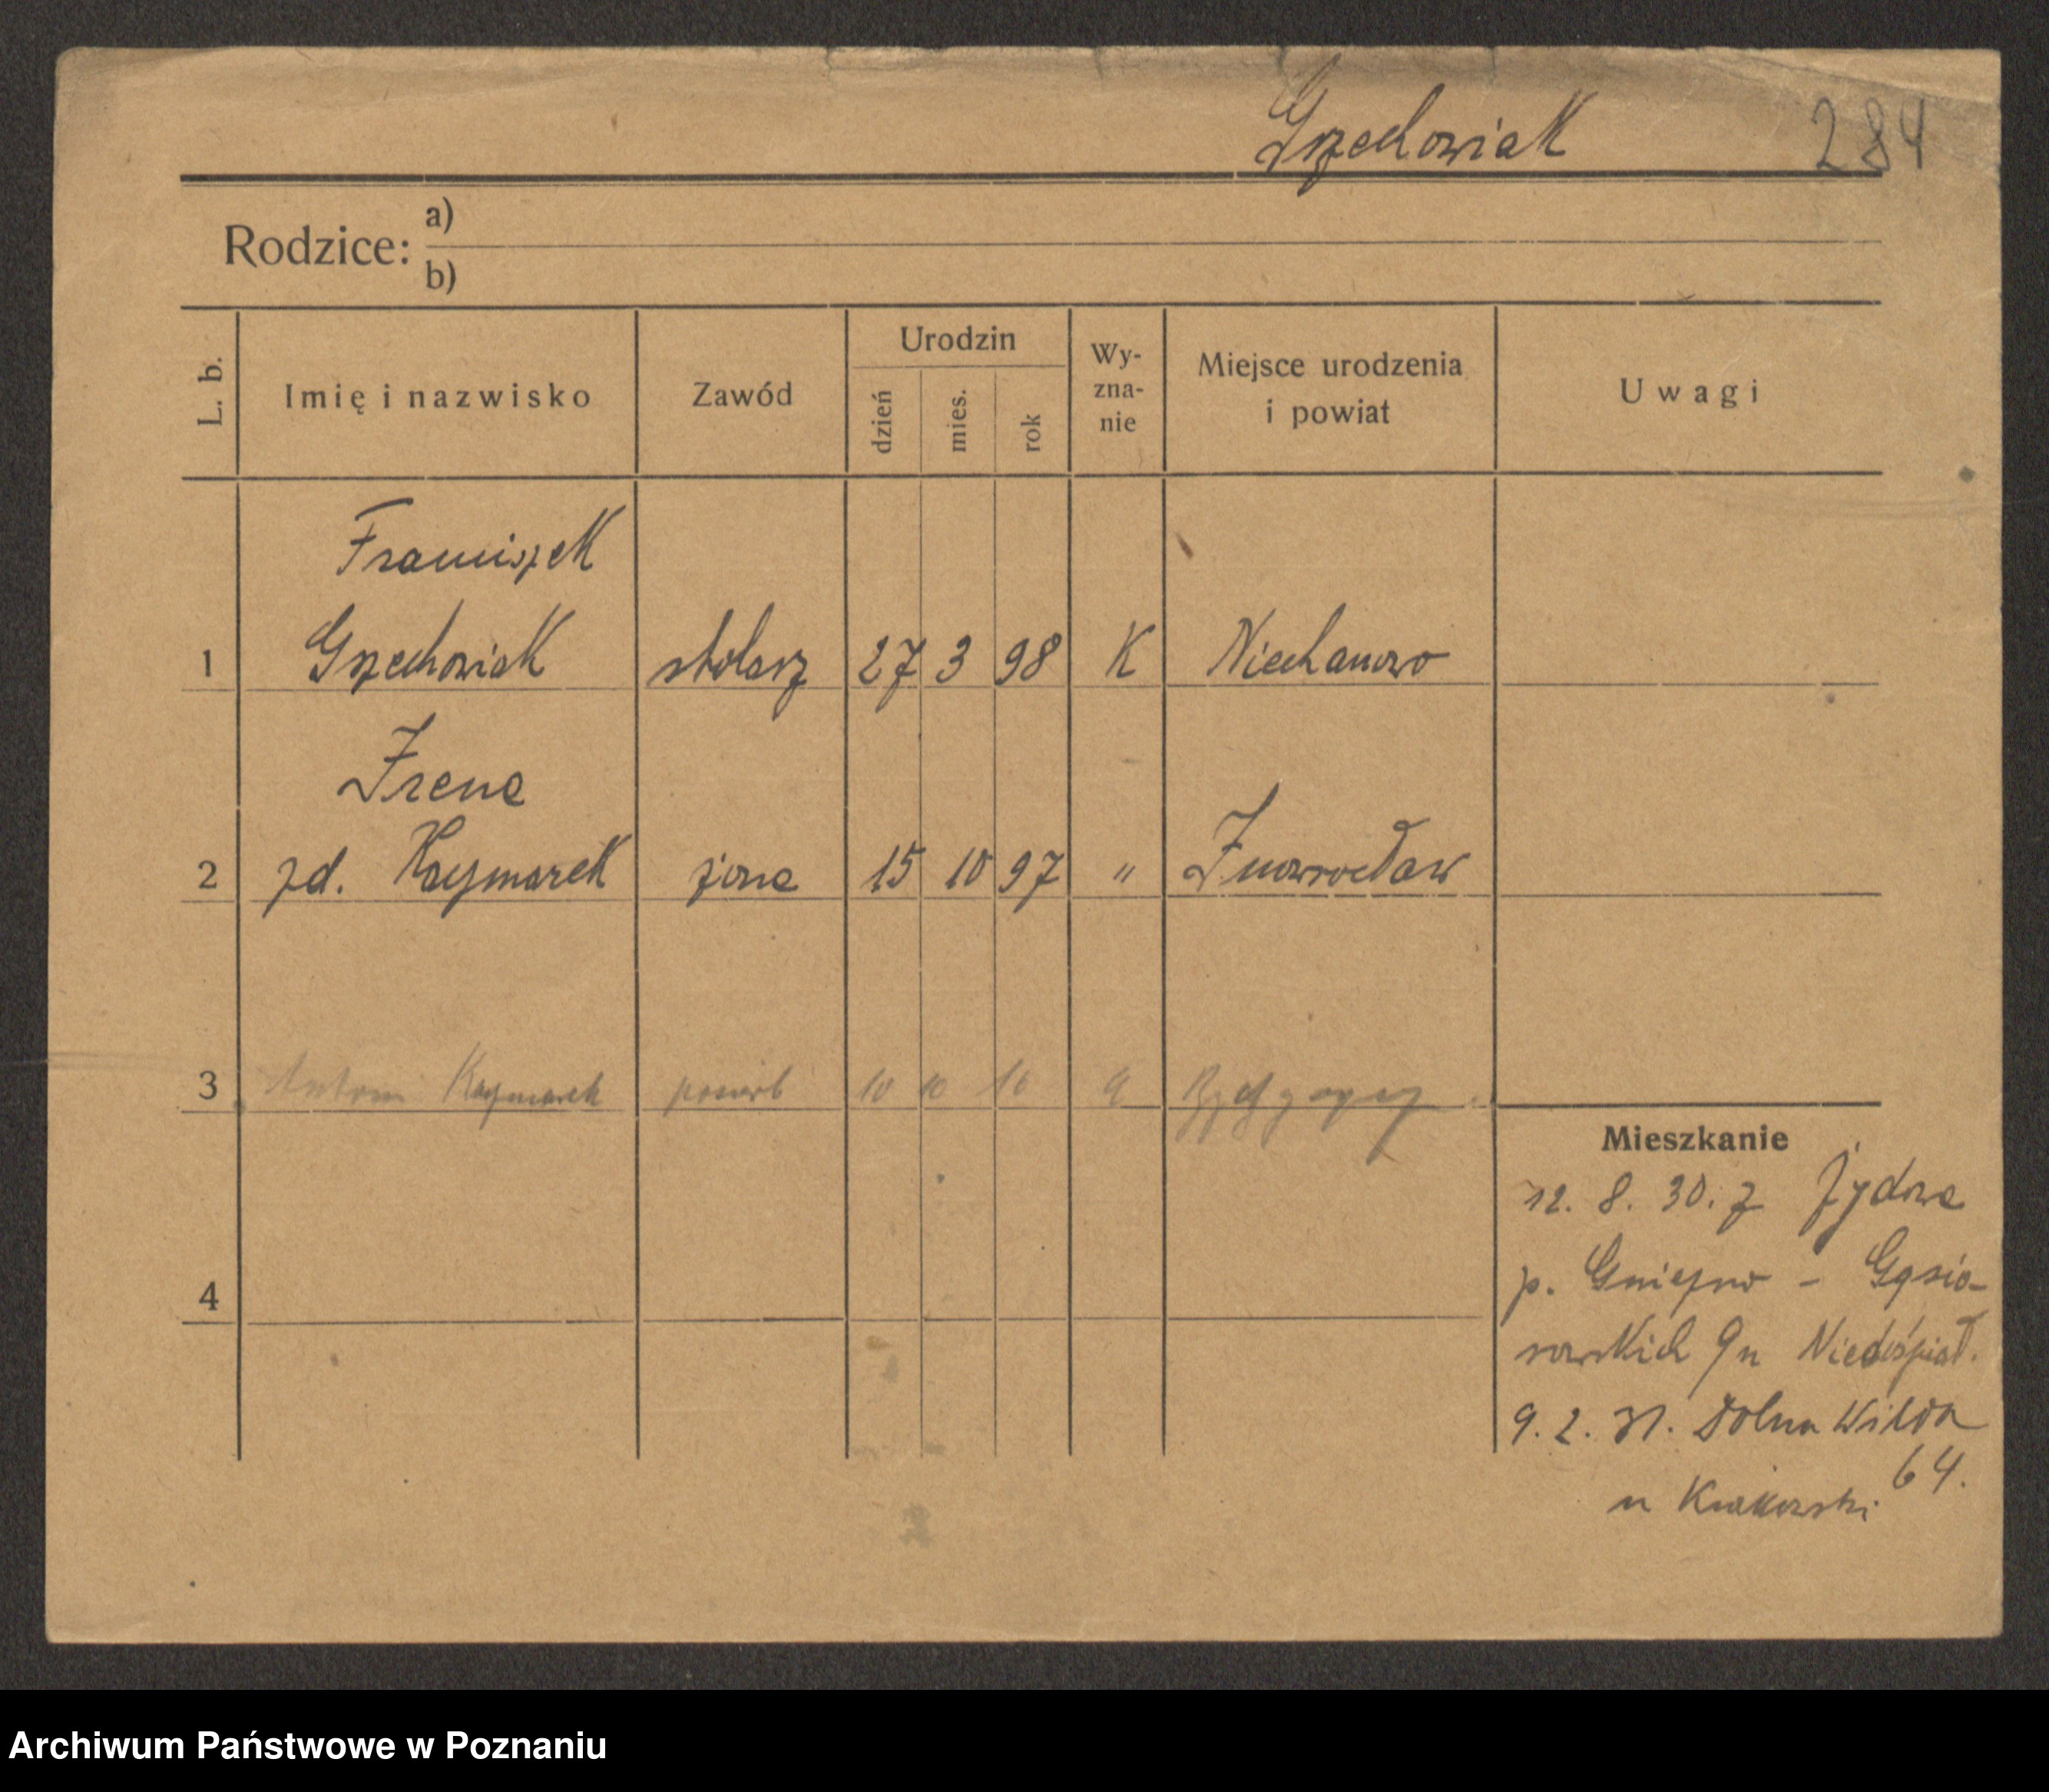 Grzechowiak 284
Rodzice: a)
b)
L. b. Imię i nazwisko Zawód Urodzin dzień mies. rok Wy-zna-nie Miejsce urodzenia i powiat Uwagi
Franciszek
1 Grzechowiak stolarz 27 3 98 K Niechanowo
Irena
2 zd. Kaczmarek żona 15 10 97 " Inowrocław
3 Antoni Kaczmarek 10 10
4
Mieszkanie
12. 8. 30. z Żydowa
p. Gniezno - Gąsio-
rowskich 9 u Niedośpiał.
9. 2. 31. Dolna Wilda
64.
u Krakowski
Archiwum Państwowe w Poznaniu